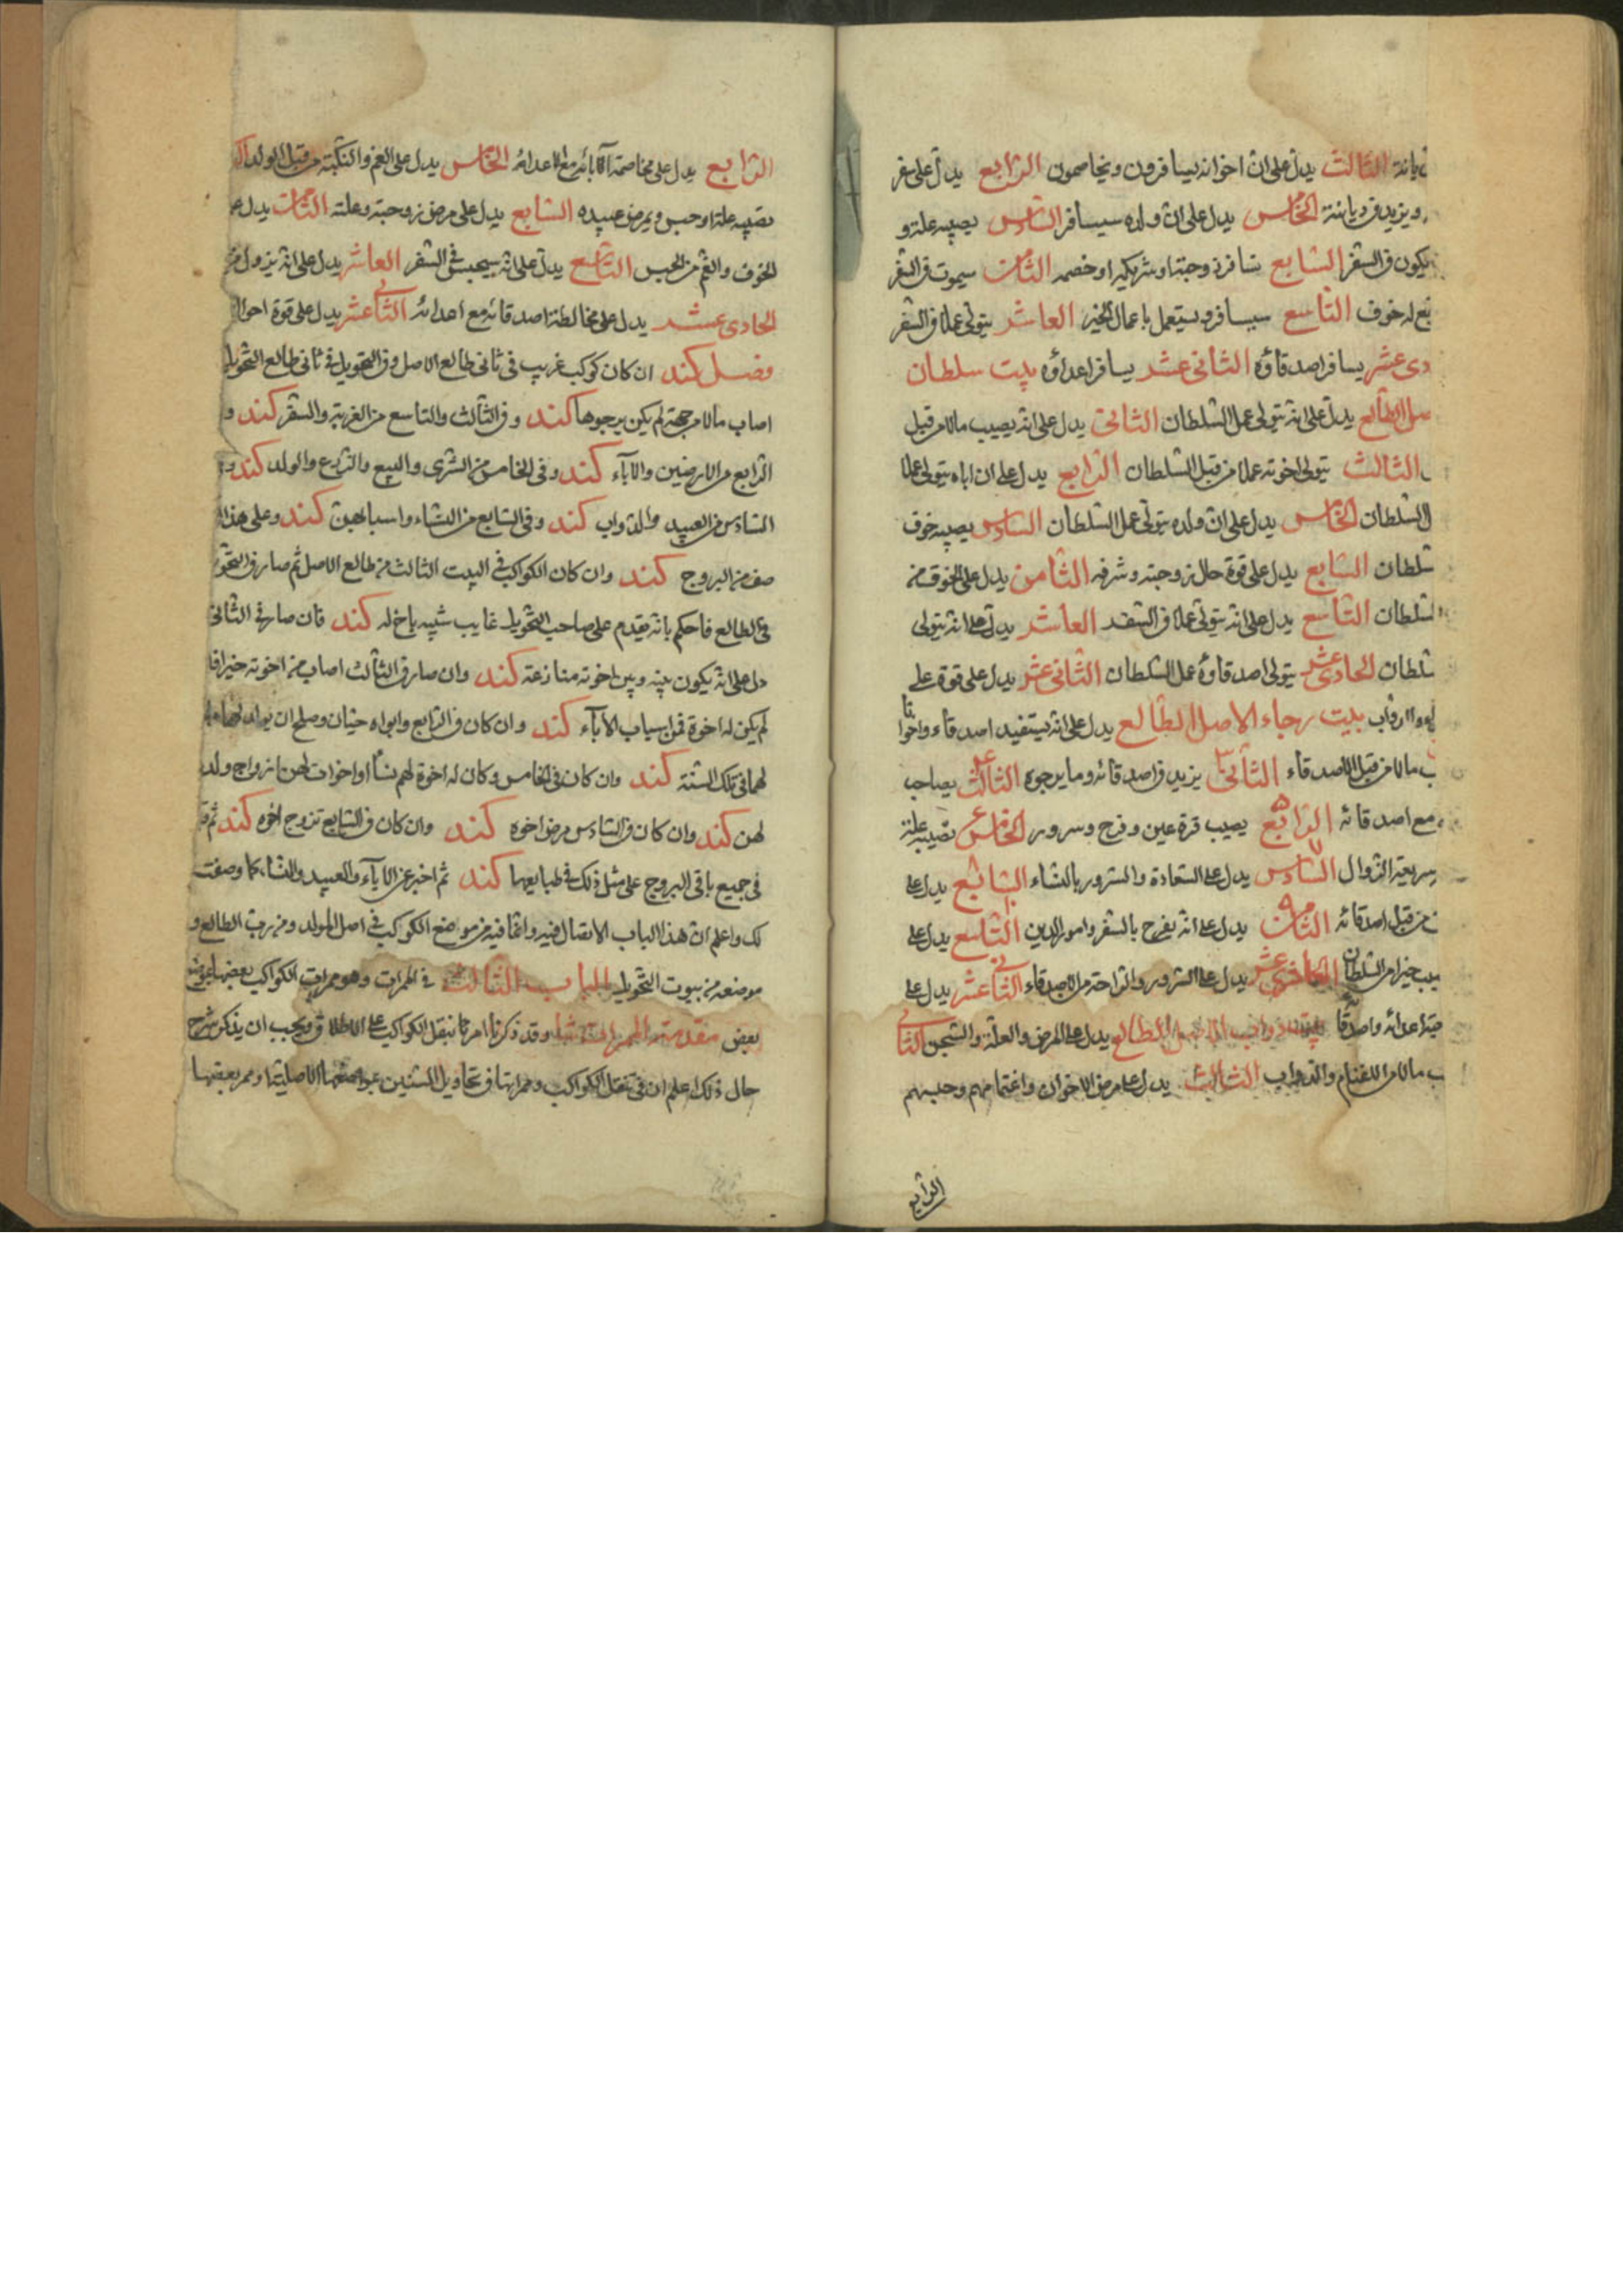 ديانة الثالث يدل على ان اخوانه يسافرون ويخاصمون الرابع يدل على سفر
ويزيد في ديانته الخامس يدل على ان ولده سيسافر السادس يصيبه علة و
يكون في السفر السابع تسافر زوجته او شريكه او خصمه الثامن سيموت في السفر
يقع له خوف التاسع سيسافر ويستعمل باعمال الخير العاشر يتولى عملا في السفر
دى عشر يسافر اصدقاؤه الثانى عشر يسافر اعداؤه بيت سلطان
صل الطالع يدل على انه يتولى عمل السلطان الثانى يدل على انه يصيب مالا من قبل
الثالث يتولى اخوته عملا من قبل السلطان الرابع يدل على ان اباه يتولى عملا
السلطان الخامس يدل على ان ولده يتولى عمل السلطان السادس يصيبه خوف
سلطان السابع يدل على قوة حال زوجته وشرفه الثامن يدل على الخوف من
السلطان التاسع يدل على انه يتولى عملا في السفر العاشر يدل على انه يتولى
سلطان الحادى عشر يتولى اصدقاؤه عمل السلطان الثانى عشر يدل على قوة على
بيت رجاء الاصل الطالع يدل على انه يستفيد اصدقاء واخوانا
ب مالا من قبل الاصدقاء الثانى يزيد في اصدقائه وما يرجوه الثالث يصاحب
مع اصدقائه الرابع يصيب قرة عين وفرح وسرور الخامس تصيبه علة
سريعة الزوال السادس يدل على السعادة والسرور بالنساء السابع يدل على
من قبل اصدقائه الثامن يدل على انه يفرح بالسفر وامور الدين التاسع يدل على
يصيب خيرا من السلطان الحادى عشر يدل على السرور والراحة من الاصدقاء الثانى عشر يدل على
اعدائه واصدقائه بيت دواب الاصل الطالع يدل على المرض والعلة والسجن الثانى
ب مالا من الاغنام والدواب الثالث يدل على مرض الاخوان واغتمامهم وحبسهم
الرابع
الرابع يدل على مخاصمة آبائه مع الاعداء الخامس يدل على الغم والنكبة من قبل الولد
تصيبه علة او حبس ويمرض عبيده السابع يدل على مرض زوجته وعلته الثامن يدل على
الخوف والغم من الحبس التاسع يدل على انه سيحبس في السفر العاشر يدل على انه يزول من
الحادى عشر يدل على مخالطة اصدقائه مع اعدائه الثانى عشر يدل على قوة احوال
فصل كند ان كان كوكب غريب في ثانى طالع الاصل وفي التحويل في ثانى طالع التحويل
اصاب مالا من جهة لم يكن يرجوها كند وفي الثالث والتاسع من الغربة والسفر كند و
الرابع من الارضين والآباء كند وفي الخامس من الشرى والبيع والزرع والولد كند و
السادس من العبيد والدواب كند وفي السابع من النساء واسبابهن كند وعلى هذا
صف من البروج كند وان كان الكواكب في البيت الثالث من طالع الاصل ثم صار في التحويل
في الطالع فاحكم بانه يقدم على صاحب التحويل غايب شبيه باخ له كند فان صار في الثانى
دل على انه يكون بينه وبين اخوته منازعة كند وان صار في الثالث اصاب من اخوته خيرا فا
لم يكن له اخوة فمن اسباب الآباء كند وان كان في الرابع وابواه حيان وصلح ان يولد لهما ولد
لهما في تلك السنة كند وان كان في الخامس وكان له اخوة لهم نساء او اخوات لهن ازواج ولد
لهن كند وان كان في السادس مرض اخوه كند وان كان في السابع تزوج اخوه كند ثم
في جميع باقى البروج على مثل ذلك في طبايعها كند ثم اخبر عن الآباء والعبيد والنساء كما وصفت
لك واعلم ان هذا الباب الاتصال فيه وانما فيه من مواضع الكوكب في اصل المولد ومن رب الطالع و
موضعه من بيوت التحويل الباب الثالث في الممرات وهو ممرات الكواكب بعضها على
بعض مقدمة الممرات وقد ذكرنا امر تا تنقل الكواكب على الاطلاق ويجب ان يذكر شرح
حال ذلك اعلم ان في تنقل الكواكب وممراتها في تحاويل السنين بمواضعها الاصلية او ممر بعضها